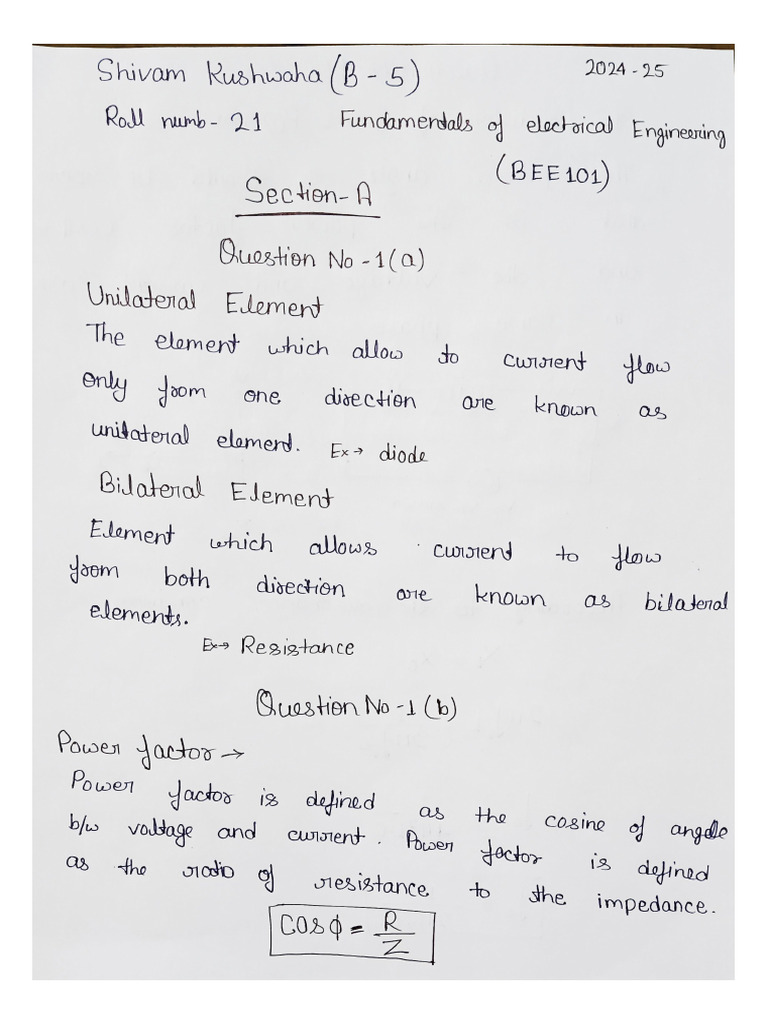 Shivam Kushwaha (B - 5) 2024-25
Roll numb - 21 Fundamentals of electrical Engineering
(BEE101)
Section-A
Question No -1(a)
Unilateral Element
The element which allow to current flow
only from one direction are known as
unilateral element. Ex→ diode
Bilateral Element
Element which allows current to flow
from both direction are known as bilateral
elements.
Ex→ Resistance
Question No -1(b)
Power factor →
Power factor is defined as the cosine of angle
b/w voltage and current. Power factor is defined
as the ratio of resistance to the impedance.
COSϕ = R/Z